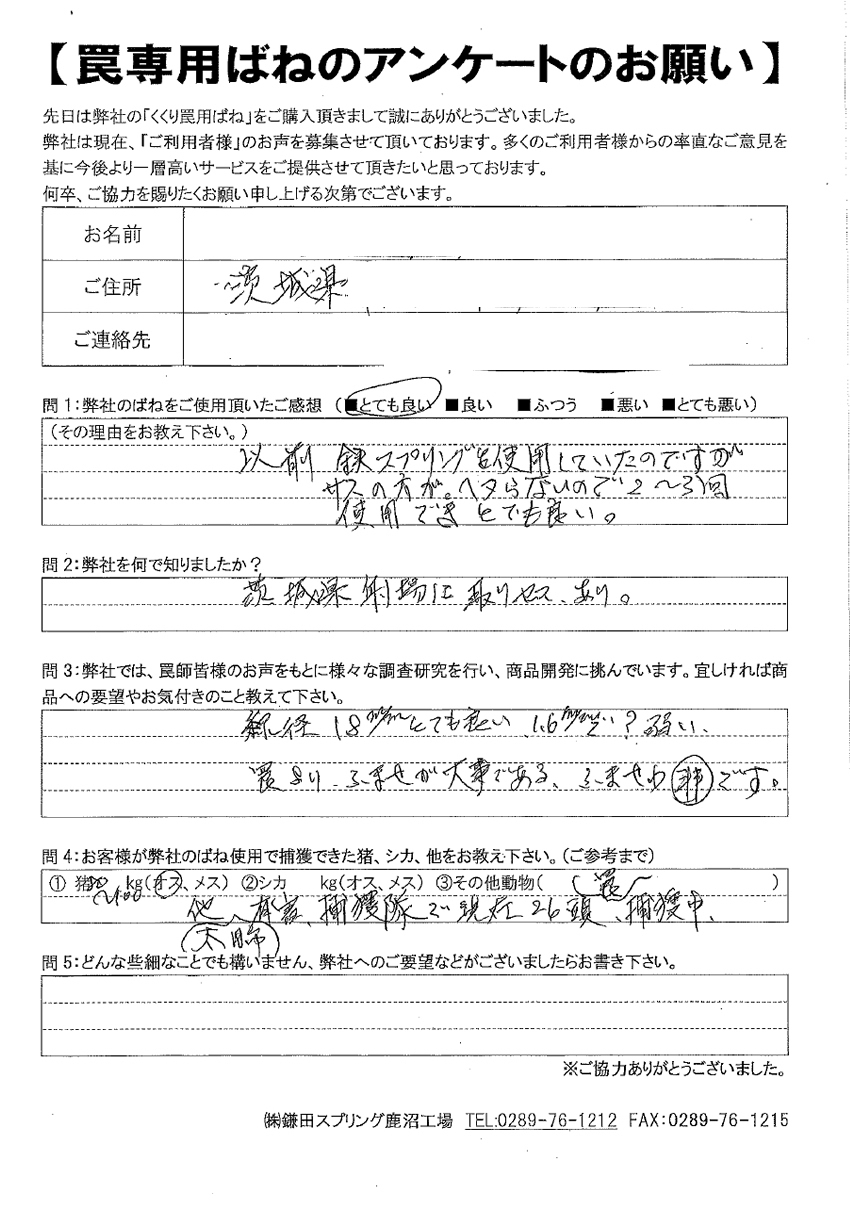 【罠専用ばねのアンケートのお願い】
先日は弊社の「くくり罠用ばね」をご購入頂きまして誠にありがとうございました。
弊社は現在、「ご利用者様」のお声を募集させて頂いております。多くのご利用者様からの率直なご意見を
基に今後より一層高いサービスをご提供させて頂きたいと思っております。
何卒、ご協力を賜りたくお願い申し上げる次第でございます。
お名前
ご住所 茨城県
ご連絡先
問1:弊社のばねをご使用頂いたご感想 (■とても良い ■良い ■ふつう ■悪い ■とても悪い)
(その理由をお教え下さい。)
以前 鉄スプリングを使用していたのですが
サスの方が。ヘタらないので2～3回
使用できとても良い。
問2:弊社を何で知りましたか?
茨城県射場に取りセス、あり。
問3:弊社では、罠師皆様のお声をもとに様々な調査研究を行い、商品開発に挑んでいます。宜しければ商
品への要望やお気付きのこと教えて下さい。
線径 18m/mとても良い 1.6m/m ? 弱い、
罠より、ふませが大事である、ふませわ です。
問4:お客様が弊社のばね使用で捕獲できた猪、シカ、他をお教え下さい。(ご参考まで)
① 猪 ～100 kg(オス、メス) ②シカ kg(オス、メス) ③その他動物( 罠 )
他、有害、捕獲隊で現在26頭、捕獲中、
問5:どんな些細なことでも構いません、弊社へのご要望などがございましたらお書き下さい。
※ご協力ありがとうございました。
㈱鎌田スプリング鹿沼工場 TEL:0289-76-1212 FAX:0289-76-1215